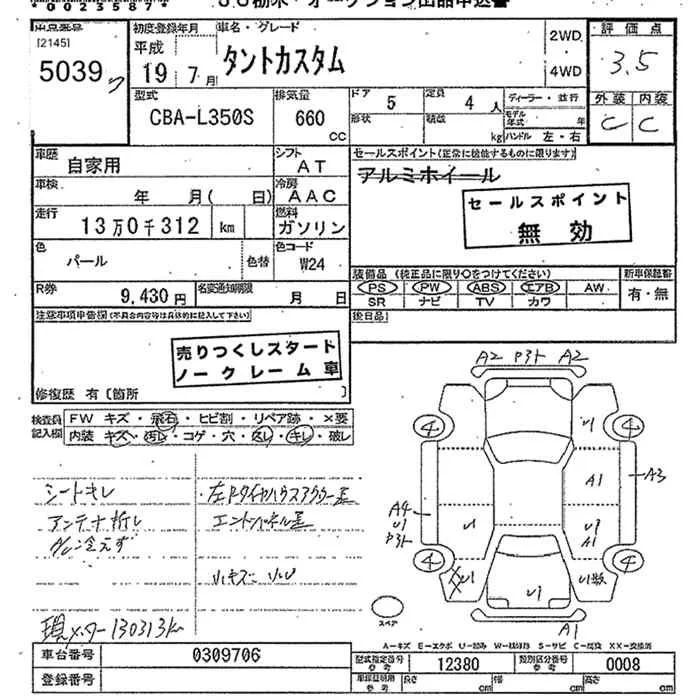 00235874
JU栃木・オークション出品申込書
出品番号
[2145]
5039
初度登録年月
平成
19 7月
車名・グレード
タントカスタム
2WD
4WD
評価点
3.5
外装 内装
C C
型式
CBA-L350S
排気量
660 CC
ドア
5
定員
4 人
形状
積載
kg
ディーラー・並行
モデル年式 年
ハンドル 左・右
車歴
自家用
シフト
AT
車検
年 月( 日)
冷房
AAC
走行
13万0千312 km
燃料
ガソリン
色
パール
色替
色コード
W24
R券
9,430円
名変通知期限
月 日
セールスポイント(正常に機能するものに限ります)
アルミホイール
セールスポイント
無効
装備品 (純正品に限り○をつけてください)
PS PW ABS エアB AW
SR ナビ TV カワ
新車保証書
有・無
後日品
注意事項申告欄(不具合内容等は具体的に記入して下さい)
売りつくしスタート
ノークレーム車
修復歴 有〔箇所 〕
検査員記入欄
FW キズ・飛石・ヒビ割・リペア跡・×要
内装 キズ・汚レ・コゲ・穴・・キレ・破レ
シートキレ
アンテナ折レ
冷えず
現メーター130313km
左Rタイヤハウス
小キズ
A2 P3ト A2
4 4
U1
A1
A3
A4
U1
P3ト
U1
U1
A1
4 4
U1
A1
スペア
A=キズ E=エクボ U=凹み W=波修跡 S=サビ C=腐食 XX=交換済
車台番号
0309706
登録番号
型式指定番号 参考
12380
類別区分番号 参考
0008
車庫証明用 参考
長さ cm
幅 cm
高さ cm